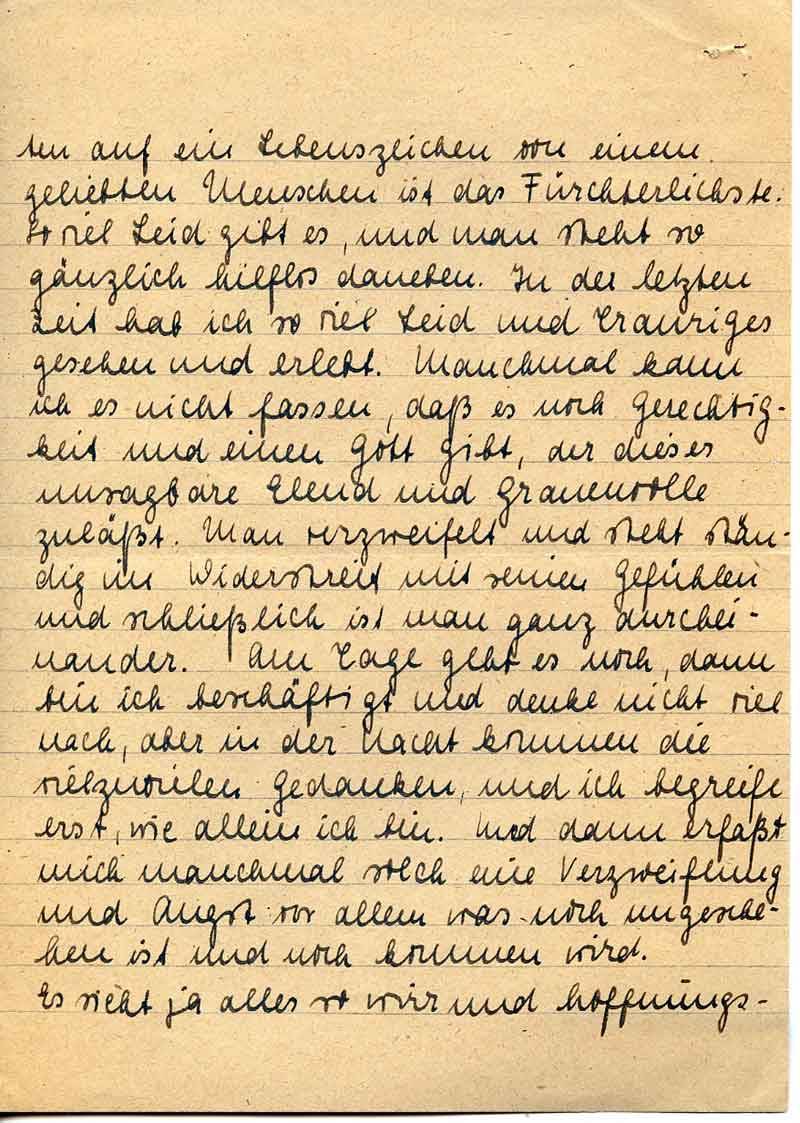 ten auf ein Lebenszeichen von einem
geliebten Menschen ist das Fürchterlichste.
So viel Leid gibt es, und man steht so
gänzlich hilflos daneben. In der letzten
Zeit hab ich so viel Leid und Trauriges
gesehen und erlebt. Manchmal kann
ich es nicht fassen, daß es noch Gerechtig-
keit und einen Gott gibt, der dieses
unsagbare Elend und Grauenvolle
zuläßt. Man verzweifelt und steht stän-
dig im Widerstreit mit seinen Gefühlen
und schließlich ist man ganz durchei-
nander. Am Tage geht es noch, dann
bin ich beschäftigt und denke nicht viel
nach, aber in der Nacht kommen die
vielzuvielen Gedanken, und ich begreife
erst, wie allein ich bin. Und dann erfaßt
mich manchmal solch eine Verzweiflung
und Angst vor allem was noch ungesche-
hen ist und noch kommen wird.
Es sieht ja alles so wirr und hoffnungs-